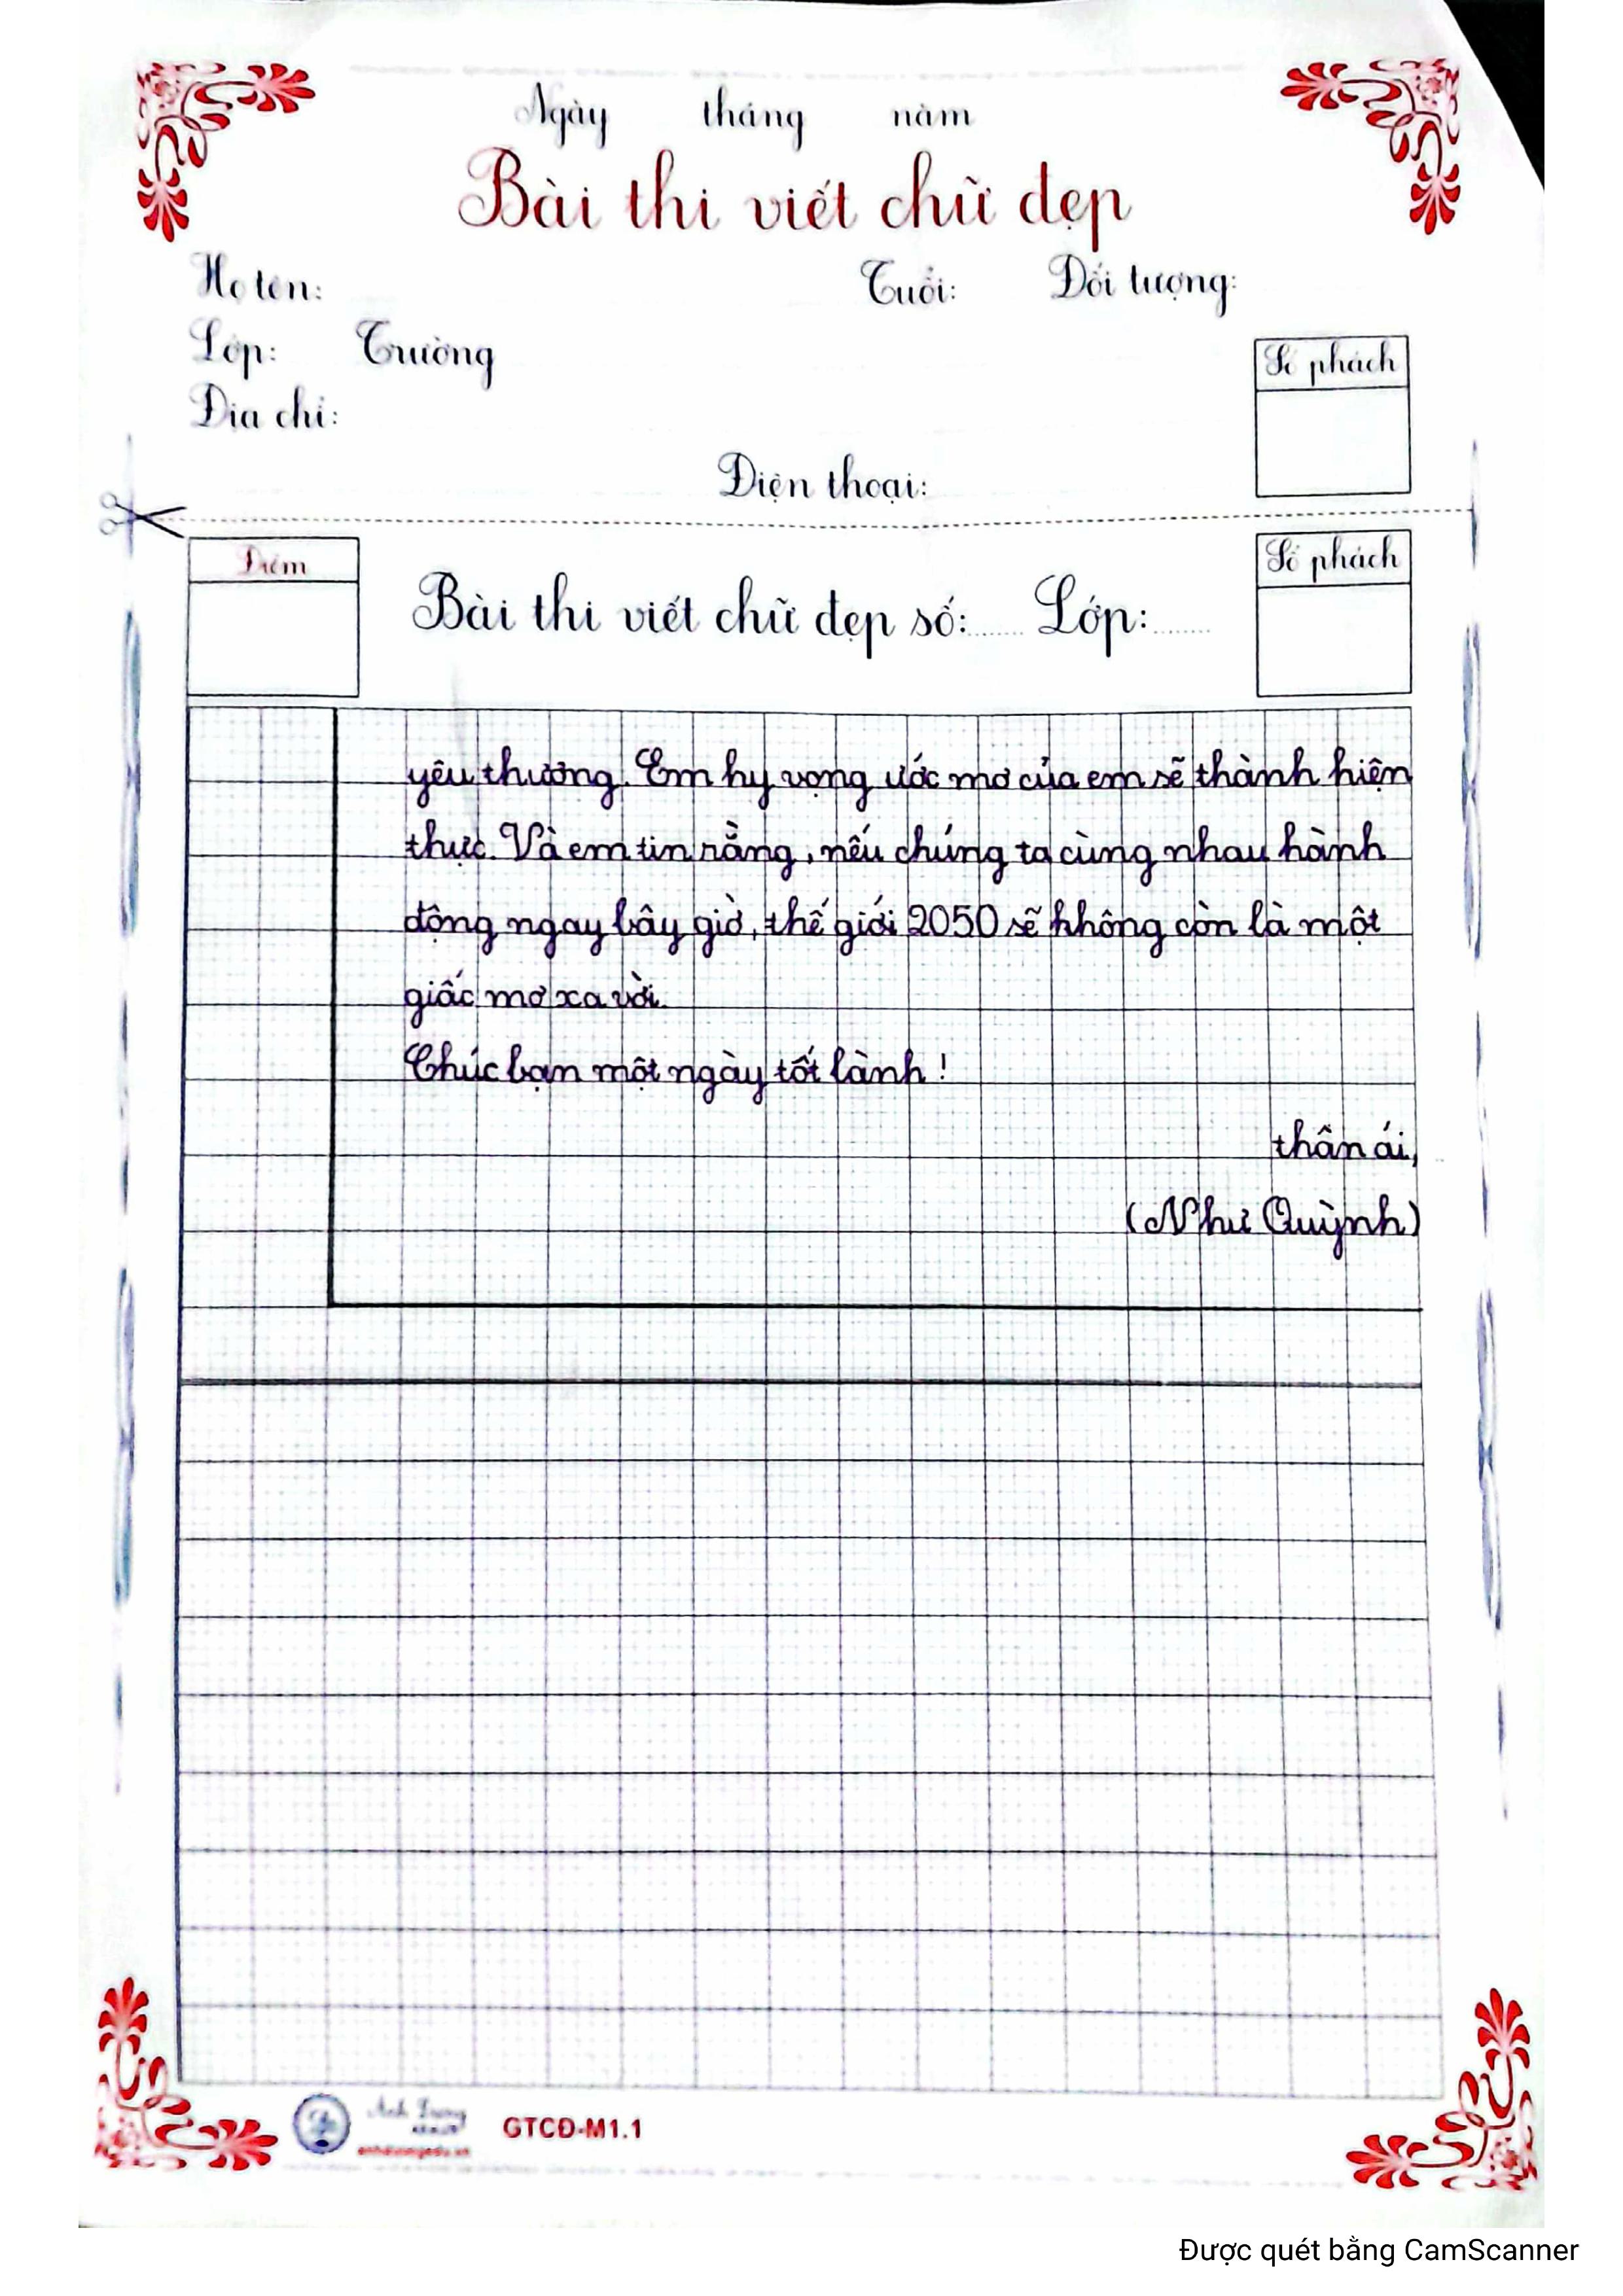 Ngày tháng năm
Bài thi viết chữ đẹp
Họ tên: Tuổi: Đối tượng:
Lớp: Trường
Số phách
Địa chỉ:
Điện thoại:
Điểm
Số phách
Bài thi viết chữ đẹp số:...... Lớp:........
yêu thương. Em hy vọng ước mơ của em sẽ thành hiện
thực. Và em tin rằng, nếu chúng ta cùng nhau hành
động ngay bây giờ, thế giới 2050 sẽ không còn là một
giấc mơ xa vời.
Chúc bạn một ngày tốt lành!
thân ái,
(Như Quỳnh)
GTCĐ-M1.1
Được quét bằng CamScanner